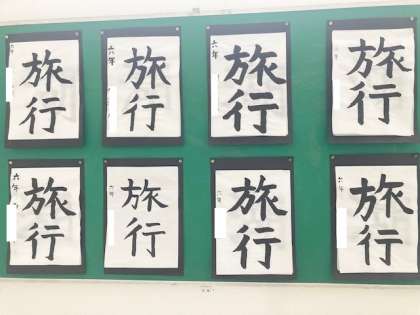 六年
旅行
六年
旅行
六年
旅行
六年
旅行
六年
旅行
六年
旅行
六年
旅行
六年
旅行